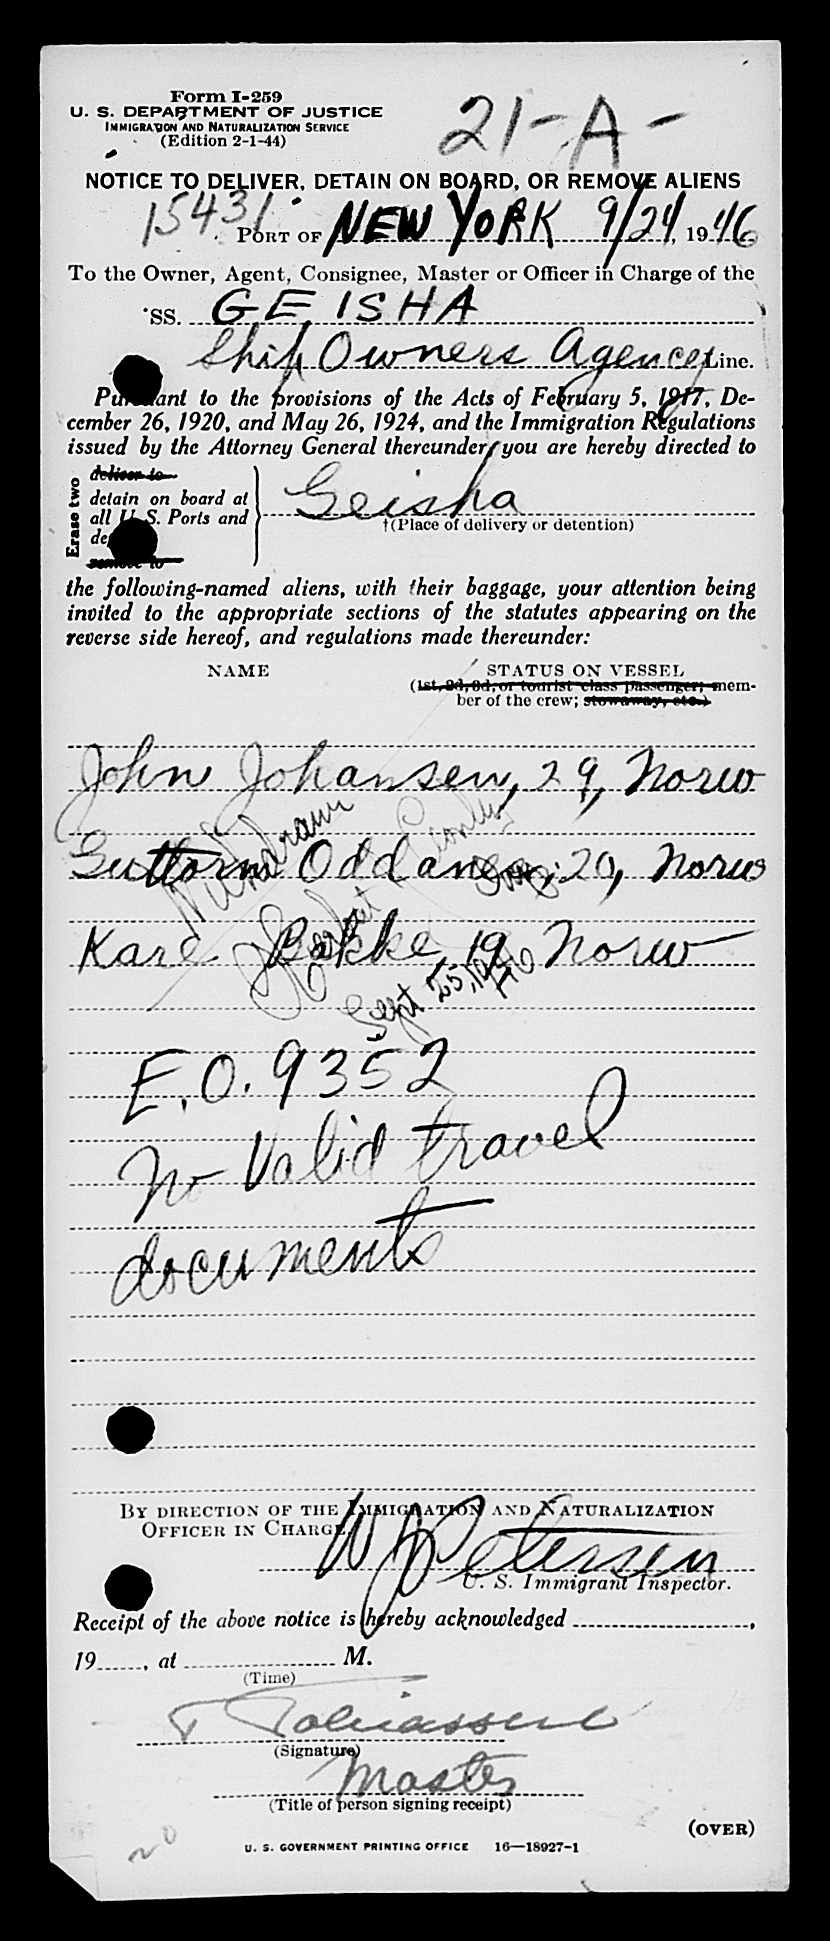 Form I-259
U. S. DEPARTMENT OF JUSTICE
IMMIGRATION AND NATURALIZATION SERVICE
(Edition 2-1-44)
21-A-
NOTICE TO DELIVER, DETAIN ON BOARD, OR REMOVE ALIENS
15431
PORT OF NEW YORK 9/24, 1946
To the Owner, Agent, Consignee, Master or Officer in Charge of the
SS. GEISHA
Ship Owners Agency Line.
Pursuant to the provisions of the Acts of February 5, 1917, De-
cember 26, 1920, and May 26, 1924, and the Immigration Regulations
issued by the Attorney General thereunder, you are hereby directed to
Erase two
deliver to
detain on board at
all U. S. Ports and
remove to
Geisha
†(Place of delivery or detention)
the following-named aliens, with their baggage, your attention being
invited to the appropriate sections of the statutes appearing on the
reverse side hereof, and regulations made thereunder:
NAME STATUS ON VESSEL
(1st, 2d, 3d, or tourist class passenger; mem-
ber of the crew; stowaway, etc.)
John Johansen, 29, Norw
Guttorm Oddane, 20, Norw
Kare Bakke, 19, Norw
Withdrawn
Herbert
Sept 25, 1946
E.O. 9352
No Valid travel
documents
BY DIRECTION OF THE IMMIGRATION AND NATURALIZATION
OFFICER IN CHARGE.
W J Petersen
U. S. Immigrant Inspector.
Receipt of the above notice is hereby acknowledged ,
19 , at M.
(Time)
T Tobiassen
(Signature)
Master
(Title of person signing receipt)
(OVER)
U. S. GOVERNMENT PRINTING OFFICE 16—18927-1